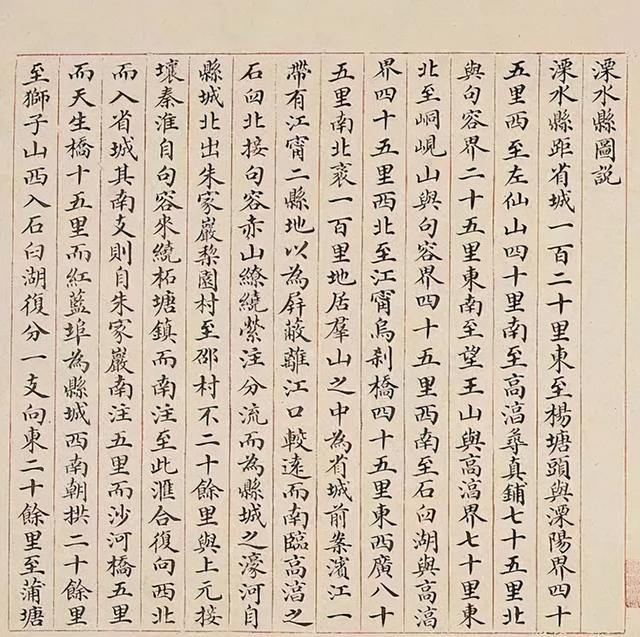 溧水縣圖説
溧水縣距省城一百二十里東至楊塘頭與溧陽界四十
五里西至左仙山四十里南至高淳尋真鋪七十五里北
與句容界二十五里東南至望王山與高淳界七十里東
北至峒峴山與句容界四十五里西南至石臼湖與高淳
界四十五里西北至江甯烏刹橋四十五里東西廣八十
五里南北袤一百里地居羣山之中為省城前案濱江一
帶有江甯二縣地以為屏蔽離江口較遠而南臨高淳之
石臼北接句容赤山繚繞縈注分流而為縣城之濠河自
縣城北出朱家巖棃園村至邵村不二十餘里與上元接
壤秦淮自句容來繞柘塘鎮而南注至此滙合復向西北
而入省城其南支則自朱家巖南注五里而沙河橋五里
而天生橋十五里而紅藍埠為縣城西南朝拱二十餘里
至獅子山西入石臼湖復分一支向東二十餘里至蒲塘